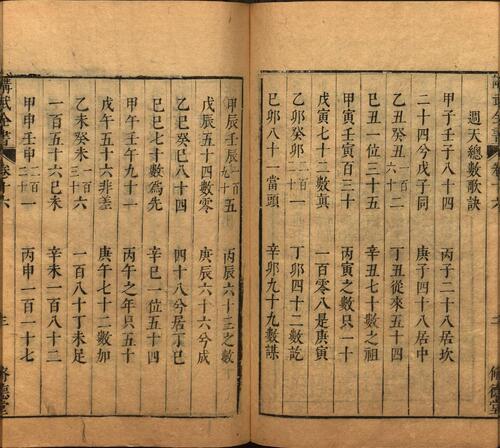 週天總數歌訣
甲子壬子一八四　丙子二十八居坎
二十四兮戊子同　庚子四十八居中
乙丑癸丑　丁丑從來五十四
己丑一位三十五　辛丑七十數之祖
甲寅壬寅百三十　丙寅之數只一十
戊寅七十二數真　一百零八是庚寅
乙卯癸卯　丁卯四十二數訖
己卯八十一當頭　辛卯九十九數謀
甲辰壬辰五　丙辰六十三之數
戊辰五十四數零　庚辰六十六兮成
乙巳癸巳八十四　四十八兮居丁巳
己巳七十數為先　辛巳一位五十四
甲午壬午九十一　丙午之年只五十
戊午五十六非差　庚午七十二數加
乙未癸未　一百八十丁未足
一百五十六己未　辛未一百八十二
甲申壬申　丙申一百一十七
講武全書　三　脩德堂